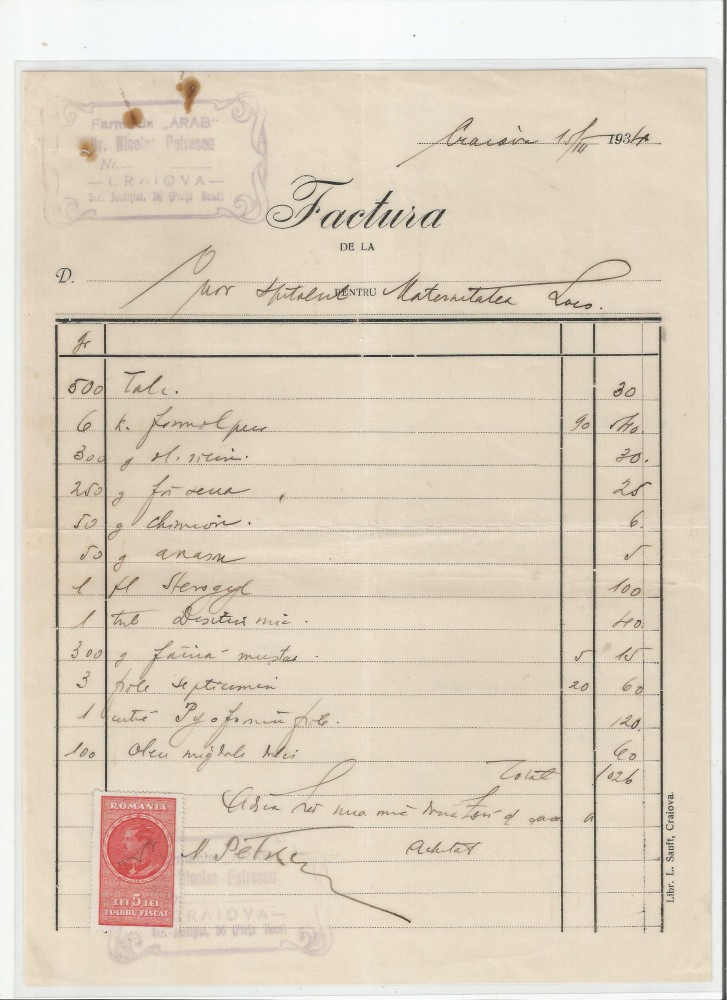 Farmacia „ARAB"
Dr. Nicolae Petrescu
Nr.
—CRAIOVA—
Str. Justiției, 36 (Piața Nouă)
Craiova 15/III 1934
Factura
DE LA
D.
PENTRU
Onor Spitalul Maternitatea Loco.
gr
500 Talc. 30
6 k. formol pur 90 540.
300 g ol. ricin. 30.
250 g foi sena 25
50 g chimion. 6.
50 g anason 5
1 fl Sterogyl 100
1 tub mic. 40.
300 g făină muștar. 5 15
3 fiole septicemin 20 60
1 cutie Pyoformină fiole. 120
100 Oleu migdale dulci 60
Total 1026
Adică lei una mie două zeci și șase
N. Petrescu Achitat
ROMANIA
LEI 5 LEI
TIMBRU FISCAL
Nicolae Petrescu
CRAIOVA—
Str. Justiției, 36 (Piața Nouă)
Libr. L. Sanft, Craiova.